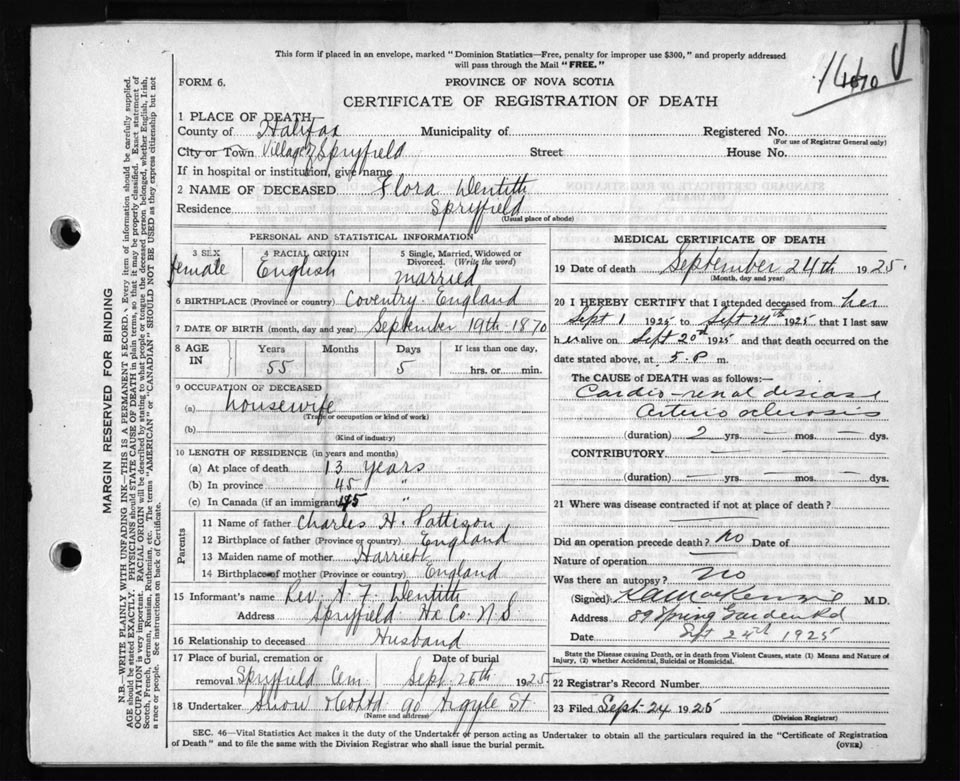 This form if placed in an envelope, marked "Dominion Statistics—Free, penalty for improper use $300," and properly addressed
will pass through the Mail "FREE."
FORM 6.
PROVINCE OF NOVA SCOTIA
CERTIFICATE OF REGISTRATION OF DEATH
1 PLACE OF DEATH—
County of Halifax Municipality of Registered No.
(For use of Registrar General only)
City or Town Village of Spryfield Street House No.
If in hospital or institution, give name
2 NAME OF DECEASED Flora Wentith
Residence Spryfield
(Usual place of abode)
PERSONAL AND STATISTICAL INFORMATION
3 SEX female
4 RACIAL ORIGIN English
5 Single, Married, Widowed or
Divorced. (Write the word)
married
6 BIRTHPLACE (Province or country) Coventry England
7 DATE OF BIRTH (month, day and year) September 19th 1870
8 AGE IN Years 55 Months Days 5 If less than one day, hrs. or min.
9 OCCUPATION OF DECEASED
(a) housewife
(Trade or occupation or kind of work)
(b)
(Kind of industry)
10 LENGTH OF RESIDENCE (in years and months)
(a) At place of death 13 years
(b) In province 45 "
(c) In Canada (if an immigrant) 45 "
Parents
11 Name of father Charles H. Pattison
12 Birthplace of father (Province or country) England
13 Maiden name of mother Harriett
14 Birthplace of mother (Province or country) England
15 Informant's name Rev. A. F. Wentith
Address Spryfield Hx Co. N.S
16 Relationship to deceased Husband
17 Place of burial, cremation or removal Spryfield Cem
Date of burial Sept. 26th 1925
18 Undertaker Snow & Co Ltd 90 Argyle St.
(Name and address)
MEDICAL CERTIFICATE OF DEATH
19 Date of death September 24th 1925.
(Month, day and year)
20 I HEREBY CERTIFY that I attended deceased from her
Sept 1 1925 to Sept 24th 1925 that I last saw
her alive on Sept 20th 1925 and that death occurred on the
date stated above, at 5. P m.
The CAUSE OF DEATH was as follows:—
Cardio-renal disease
Arterio sclerosis
(duration) 2 yrs. — mos. — dys.
CONTRIBUTORY
(duration) yrs. mos. dys.
21 Where was disease contracted if not at place of death?
Did an operation precede death? no Date of
Nature of operation —
Was there an autopsy? no
(Signed) K A MacKenzie M.D.
Address 89 Spring Garden Rd
Date Sept 24th 1925
State the Disease causing Death, or in death from Violent Causes, state (1) Means and Nature of
Injury, (2) whether Accidental, Suicidal or Homicidal.
22 Registrar's Record Number
23 Filed Sept 24 1925
(Division Registrar)
SEC. 46—Vital Statistics Act makes it the duty of the Undertaker or person acting as Undertaker to obtain all the particulars required in the "Certificate of Registration
of Death" and to file the same with the Division Registrar who shall issue the burial permit.
(OVER)
MARGIN RESERVED FOR BINDING
N.B.—WRITE PLAINLY WITH UNFADING INK—THIS IS A PERMANENT RECORD. Every item of information should be carefully supplied.
AGE should be stated EXACTLY. PHYSICIANS should STATE CAUSE OF DEATH in plain terms, so that it may be properly classified. Exact statement of
OCCUPATION is very important. RACIAL ORIGIN will be described by stating to what people or tongue the deceased person belonged, whether English, Irish,
Scotch, French, German, Russian, Ruthenian, etc. The terms "AMERICAN" or "CANADIAN" SHOULD NOT BE USED as they express citizenship but not
a race or people. See instructions on back of Certificate.